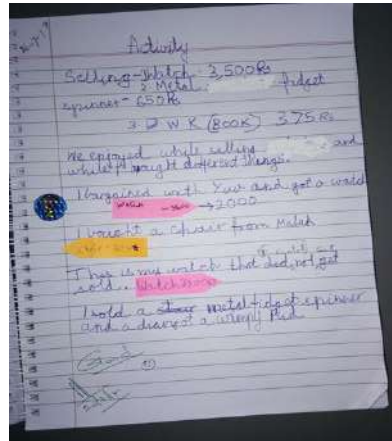 Activity
Selling - Watch 3,500 Rs
2. Metal fidget
spinner - 650 Rs
3. D W K (BOOK) 375 Rs
We enjoyed while selling and
while bought different things.
I bargained with Yuv and got a watch
→ 2000
I bought a from Malak
This is my watch that did not get
sold.
I sold a metal fidget spinner
and a a Wimpy